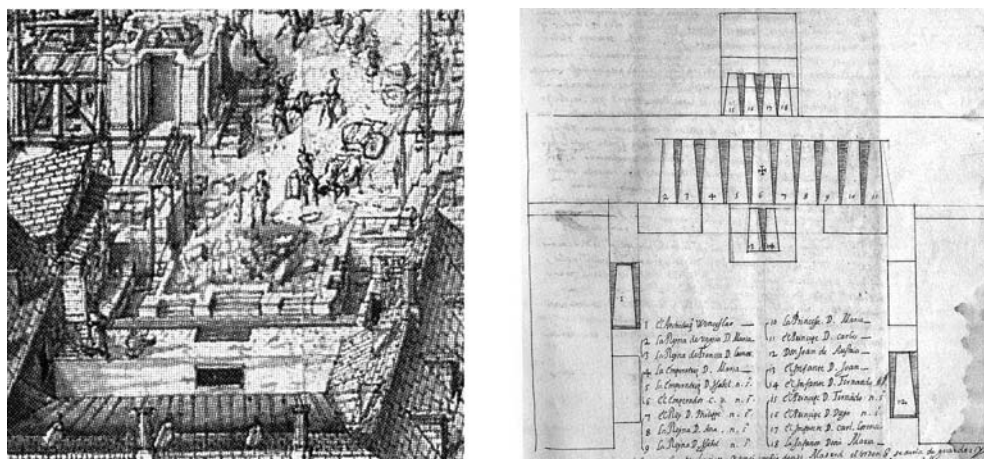 15 16 17 18
2 3 4 5 6 7 8 9 10 11
13 14
1
12
1 El Archiduq Wenceslao
2 la Reyna de Ungria D. Maria
3 la Reyna de Francia D. Leonor
4 la Emperatriz D. Maria
5 la Emperatriz D. Ysabel n. s.
6 el Emperador C. v. n. s.
7 el Rey D. Phelippe n. s.
8 la Reyna D. Ana. n. s.
9 la Reyna D. Ysabel n. s.
10 la Princesa D. Maria
11 el Principe D. Carlos
12 Don Joan de Austria
13 el Infante D. Joan
14 el Infante D. Fernando
15 el Principe D. Fernādo n. s.
16 el Principe D. Diego n. s.
17 el Infante D. Carl. Lorenço
18 la Infanta Doña Maria
Madrid el orden q se avia de guardar